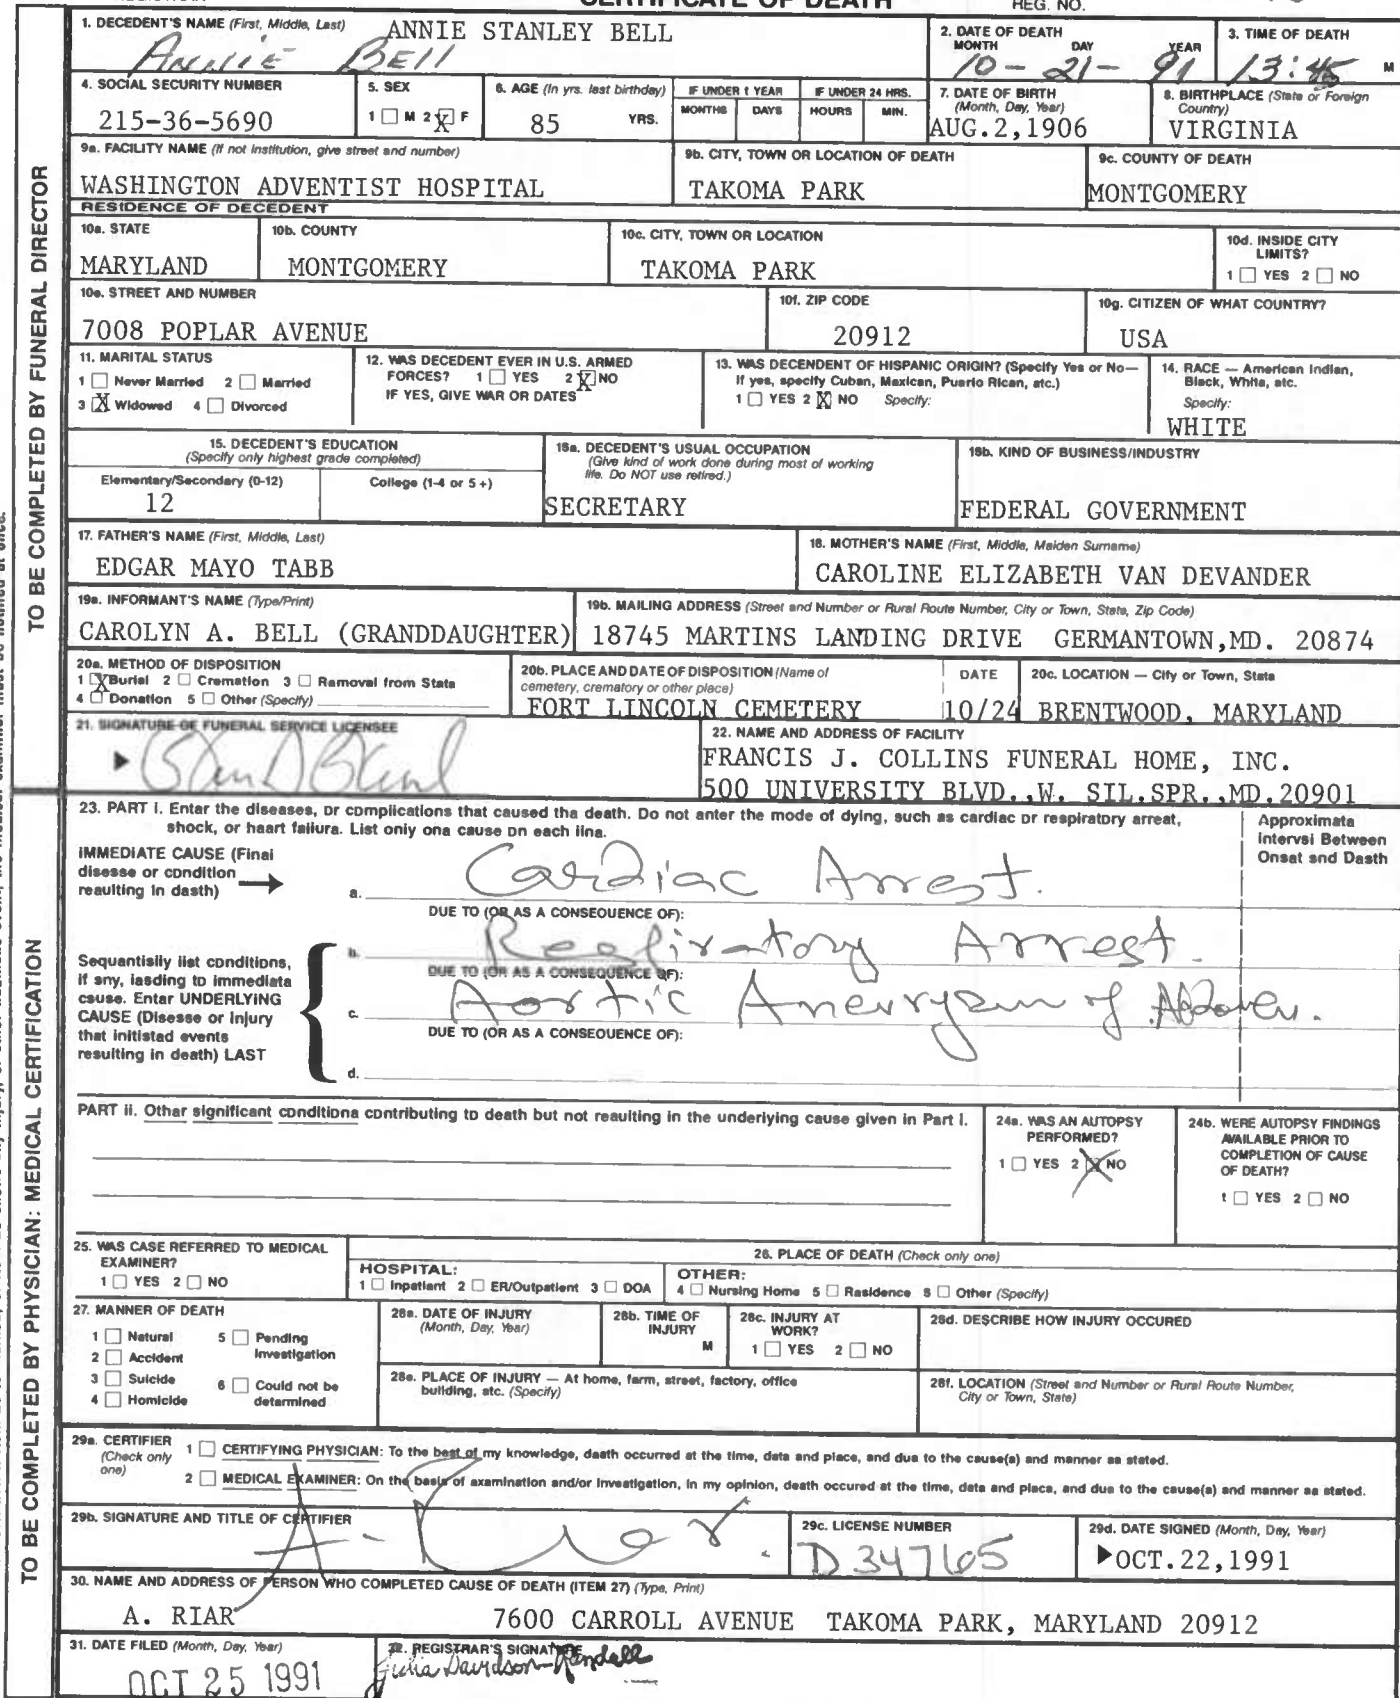 CERTIFICATE OF DEATH
REG. NO.
1. DECEDENT'S NAME (First, Middle, Last) ANNIE STANLEY BELL
Annie Bell
2. DATE OF DEATH
MONTH DAY YEAR
10-21-91
3. TIME OF DEATH
13:45 M
4. SOCIAL SECURITY NUMBER
215-36-5690
5. SEX
1 ☐ M 2 ☒ F
6. AGE (In yrs. last birthday)
85 YRS.
IF UNDER 1 YEAR
MONTHS DAYS
IF UNDER 24 HRS.
HOURS MIN.
7. DATE OF BIRTH
(Month, Day, Year)
AUG.2,1906
8. BIRTHPLACE (State or Foreign
Country)
VIRGINIA
9a. FACILITY NAME (If not institution, give street and number)
WASHINGTON ADVENTIST HOSPITAL
9b. CITY, TOWN OR LOCATION OF DEATH
TAKOMA PARK
9c. COUNTY OF DEATH
MONTGOMERY
RESIDENCE OF DECEDENT
10a. STATE
MARYLAND
10b. COUNTY
MONTGOMERY
10c. CITY, TOWN OR LOCATION
TAKOMA PARK
10d. INSIDE CITY
LIMITS?
1 ☐ YES 2 ☐ NO
10e. STREET AND NUMBER
7008 POPLAR AVENUE
10f. ZIP CODE
20912
10g. CITIZEN OF WHAT COUNTRY?
USA
11. MARITAL STATUS
1 ☐ Never Married 2 ☐ Married
3 ☒ Widowed 4 ☐ Divorced
12. WAS DECEDENT EVER IN U.S. ARMED
FORCES? 1 ☐ YES 2 ☒ NO
IF YES, GIVE WAR OR DATES
13. WAS DECENDENT OF HISPANIC ORIGIN? (Specify Yes or No—
If yes, specify Cuban, Maxican, Puarto Rican, atc.)
1 ☐ YES 2 ☒ NO Specify:
14. RACE — American Indian,
Black, White, atc.
Specify:
WHITE
15. DECEDENT'S EDUCATION
(Specify only highest grade completed)
Elementary/Secondary (0-12)
12
College (1-4 or 5+)
16a. DECEDENT'S USUAL OCCUPATION
(Give kind of work done during most of working
life. Do NOT use retired.)
SECRETARY
16b. KIND OF BUSINESS/INDUSTRY
FEDERAL GOVERNMENT
17. FATHER'S NAME (First, Middle, Last)
EDGAR MAYO TABB
18. MOTHER'S NAME (First, Middle, Maiden Surname)
CAROLINE ELIZABETH VAN DEVANDER
19a. INFORMANT'S NAME (Type/Print)
CAROLYN A. BELL (GRANDDAUGHTER)
19b. MAILING ADDRESS (Street and Number or Rural Route Number, City or Town, State, Zip Code)
18745 MARTINS LANDING DRIVE GERMANTOWN,MD. 20874
20a. METHOD OF DISPOSITION
1 ☒ Burial 2 ☐ Cremation 3 ☐ Ramoval from Stata
4 ☐ Donation 5 ☐ Other (Specify)
20b. PLACE AND DATE OF DISPOSITION (Name of
cemetery, crematory or other place)
FORT LINCOLN CEMETERY
DATE
10/24
20c. LOCATION — City or Town, Stata
BRENTWOOD, MARYLAND
21. SIGNATURE OF FUNERAL SERVICE LICENSEE
22. NAME AND ADDRESS OF FACILITY
FRANCIS J. COLLINS FUNERAL HOME, INC.
500 UNIVERSITY BLVD.,W. SIL.SPR.,MD.20901
TO BE COMPLETED BY FUNERAL DIRECTOR
23. PART I. Enter the diseases, or complications that caused tha death. Do not anter the mode of dying, such as cardiac or respiratory arreat,
shock, or haart failura. List only ona cause on each lina.
Approximata
Intervsi Between
Onsat snd Dasth
IMMEDIATE CAUSE (Finai
disesse or condition
reaulting in dasth)
a. Cardiac Arrest.
DUE TO (OR AS A CONSEQUENCE OF):
Sequantislly list conditions,
if sny, lasding to immediata
csuse. Entar UNDERLYING
CAUSE (Disesse or Injury
that initistad events
resulting in death) LAST
b. Respiratory Arrest.
DUE TO (OR AS A CONSEQUENCE OF):
c. Aortic Aneurysm of
DUE TO (OR AS A CONSEQUENCE OF):
d.
PART II. Othar significant conditiona contributing to death but not reaulting in the underlying cause given in Part I.
24a. WAS AN AUTOPSY
PERFORMED?
1 ☐ YES 2 ☒ NO
24b. WERE AUTOPSY FINDINGS
AVAILABLE PRIOR TO
COMPLETION OF CAUSE
OF DEATH?
1 ☐ YES 2 ☐ NO
25. WAS CASE REFERRED TO MEDICAL
EXAMINER?
1 ☐ YES 2 ☐ NO
26. PLACE OF DEATH (Check only one)
HOSPITAL:
1 ☐ Inpatiant 2 ☐ ER/Outpatient 3 ☐ DOA
OTHER:
4 ☐ Nursing Home 5 ☐ Rasidence 6 ☐ Other (Specify)
27. MANNER OF DEATH
1 ☐ Natural 5 ☐ Pending
Investigation
2 ☐ Accident
3 ☐ Suicide 6 ☐ Could not be
determined
4 ☐ Homicide
28a. DATE OF INJURY
(Month, Day, Year)
28b. TIME OF
INJURY
M
28c. INJURY AT
WORK?
1 ☐ YES 2 ☐ NO
28d. DESCRIBE HOW INJURY OCCURED
28e. PLACE OF INJURY — At home, farm, street, factory, office
building, atc. (Specify)
28f. LOCATION (Street and Number or Rural Route Number,
City or Town, State)
29a. CERTIFIER
(Check only
one)
1 ☐ CERTIFYING PHYSICIAN: To the best of my knowledge, daath occurred at the time, data and place, and due to the cause(a) and manner aa stated.
2 ☐ MEDICAL EXAMINER: On the basis of axamination and/or Investigation, in my opinion, death occured at the time, data and placa, and dua to the cause(a) and manner aa stated.
29b. SIGNATURE AND TITLE OF CERTIFIER
29c. LICENSE NUMBER
D 34765
29d. DATE SIGNED (Month, Day, Year)
OCT.22,1991
30. NAME AND ADDRESS OF PERSON WHO COMPLETED CAUSE OF DEATH (ITEM 27) (Type, Print)
A. RIAR 7600 CARROLL AVENUE TAKOMA PARK, MARYLAND 20912
TO BE COMPLETED BY PHYSICIAN: MEDICAL CERTIFICATION
31. DATE FILED (Month, Day, Year)
OCT 25 1991
32. REGISTRAR'S SIGNATURE
Julia Davidson-Randall